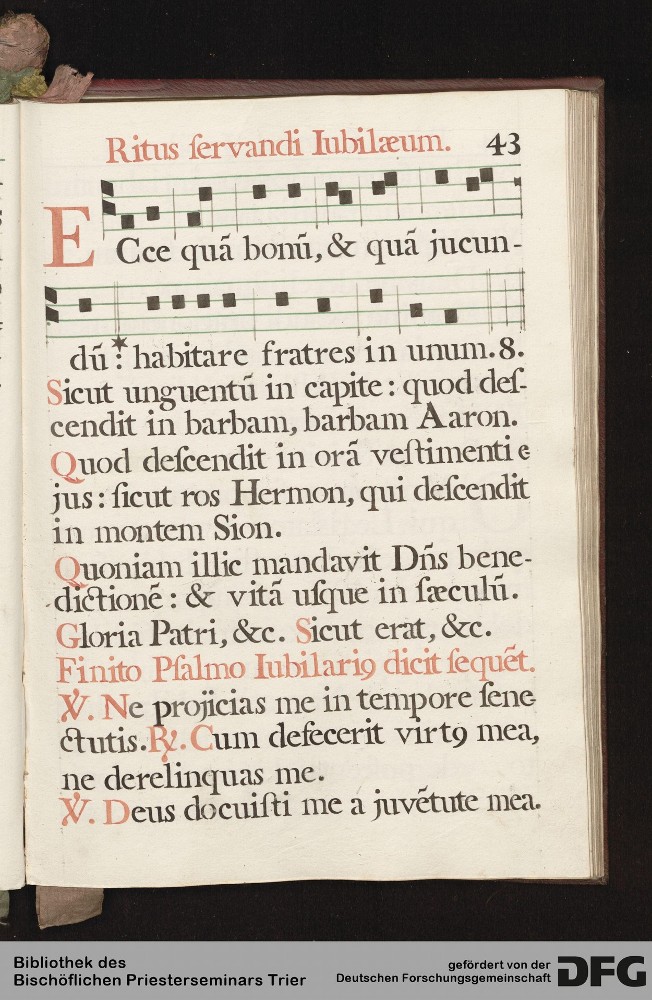 Ritus ſervandi Iubilæum. 43
ECce quã bonũ, & quã jucun-
dũ *: habitare fratres in unum. 8.
Sicut unguentũ in capite: quod deſ-
cendit in barbam, barbam Aaron.
Quod deſcendit in orã veſtimenti e
jus: ſicut ros Hermon, qui deſcendit
in montem Sion.
Quoniam illic mandavit Dñs bene-
dictionẽ: & vitã uſque in ſæculũ.
Gloria Patri, &c. Sicut erat, &c.
Finito Pſalmo Iubilariꝯ dicit ſequẽt.
℣. Ne projicias me in tempore ſene
ctutis. ℟. Cum defecerit virtꝯ mea,
ne derelinquas me.
℣. Deus docuiſti me a juvẽtute mea.
Bibliothek des
Bischöflichen Priesterseminars Trier
gefördert von der
Deutschen Forschungsgemeinschaft
DFG